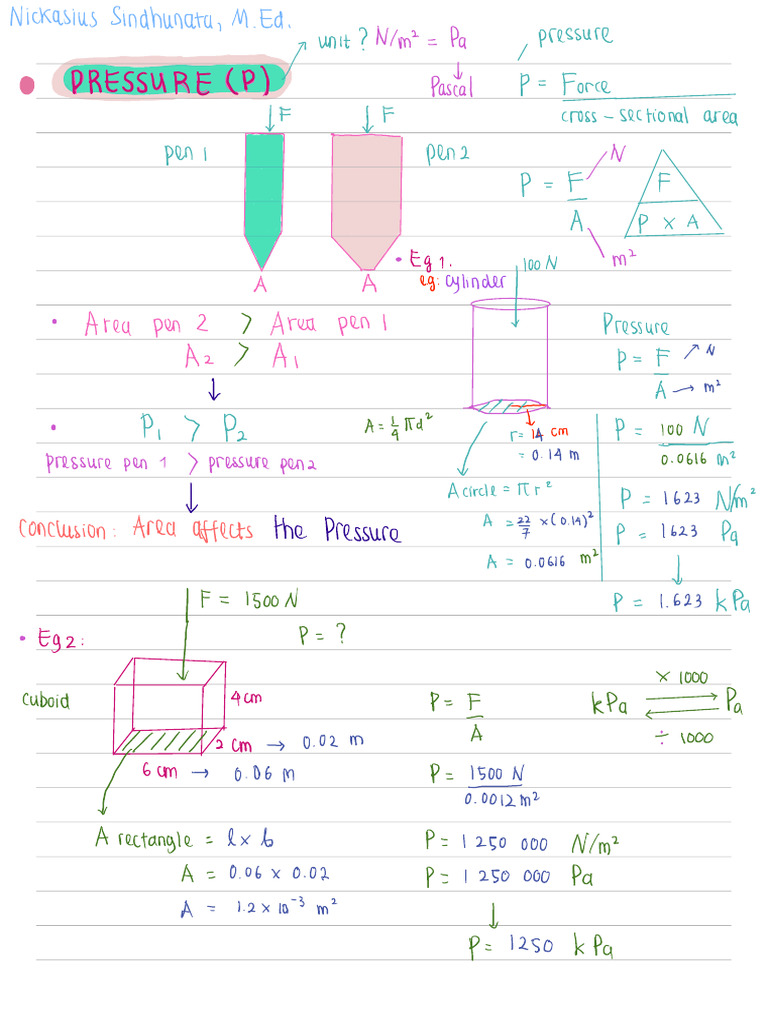 Nickasius Sindhunata, M.Ed.
unit? N/m² = Pa
Pascal
• PRESSURE (P)
pressure
P = Force
cross-sectional area
F
F
pen 1
pen 2
A
A
P = F
A
N
m²
F
P x A
• Eg 1.
eg: cylinder
100 N
• Area pen 2 > Area pen 1
A₂ > A₁
↓
• P₁ > P₂
pressure pen 1 > pressure pen 2
↓
Conclusion: Area affects the Pressure
A = ¼ πd²
r = 14 cm
= 0.14 m
A circle = π r²
A = 22/7 x (0.14)²
A = 0.0616 m²
Pressure
P = F → N
A → m²
P = 100 N
0.0616 m²
P = 1623 N/m²
P = 1623 Pa
↓
P = 1.623 kPa
F = 1500 N
• Eg 2:
P = ?
cuboid
4 cm
2 cm → 0.02 m
6 cm → 0.06 m
A rectangle = l x b
A = 0.06 x 0.02
A = 1.2 x 10⁻³ m²
P = F
A
P = 1500 N
0.0012 m²
P = 1 250 000 N/m²
P = 1 250 000 Pa
↓
P = 1250 kPa
x 1000
kPa Pa
÷ 1000